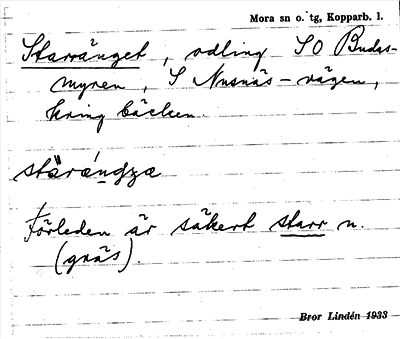 Mora sn o. tg, Kopparb. l.
Starränget, odling SO Budas-
myren, S Nusnäs-vägen,
kring bäcken.
Förleden är säkert starr n.
(gräs).
Bror Lindén 1933